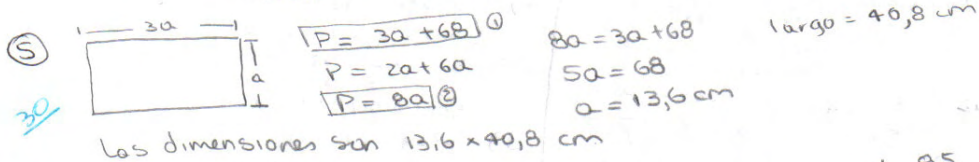 ⑤ 3a a
P = 3a + 68 ①
P = 2a + 6a
P = 8a ②
8a = 3a + 68
5a = 68
a = 13,6 cm
largo = 40,8 cm
30
Las dimensiones son 13,6 x 40,8 cm